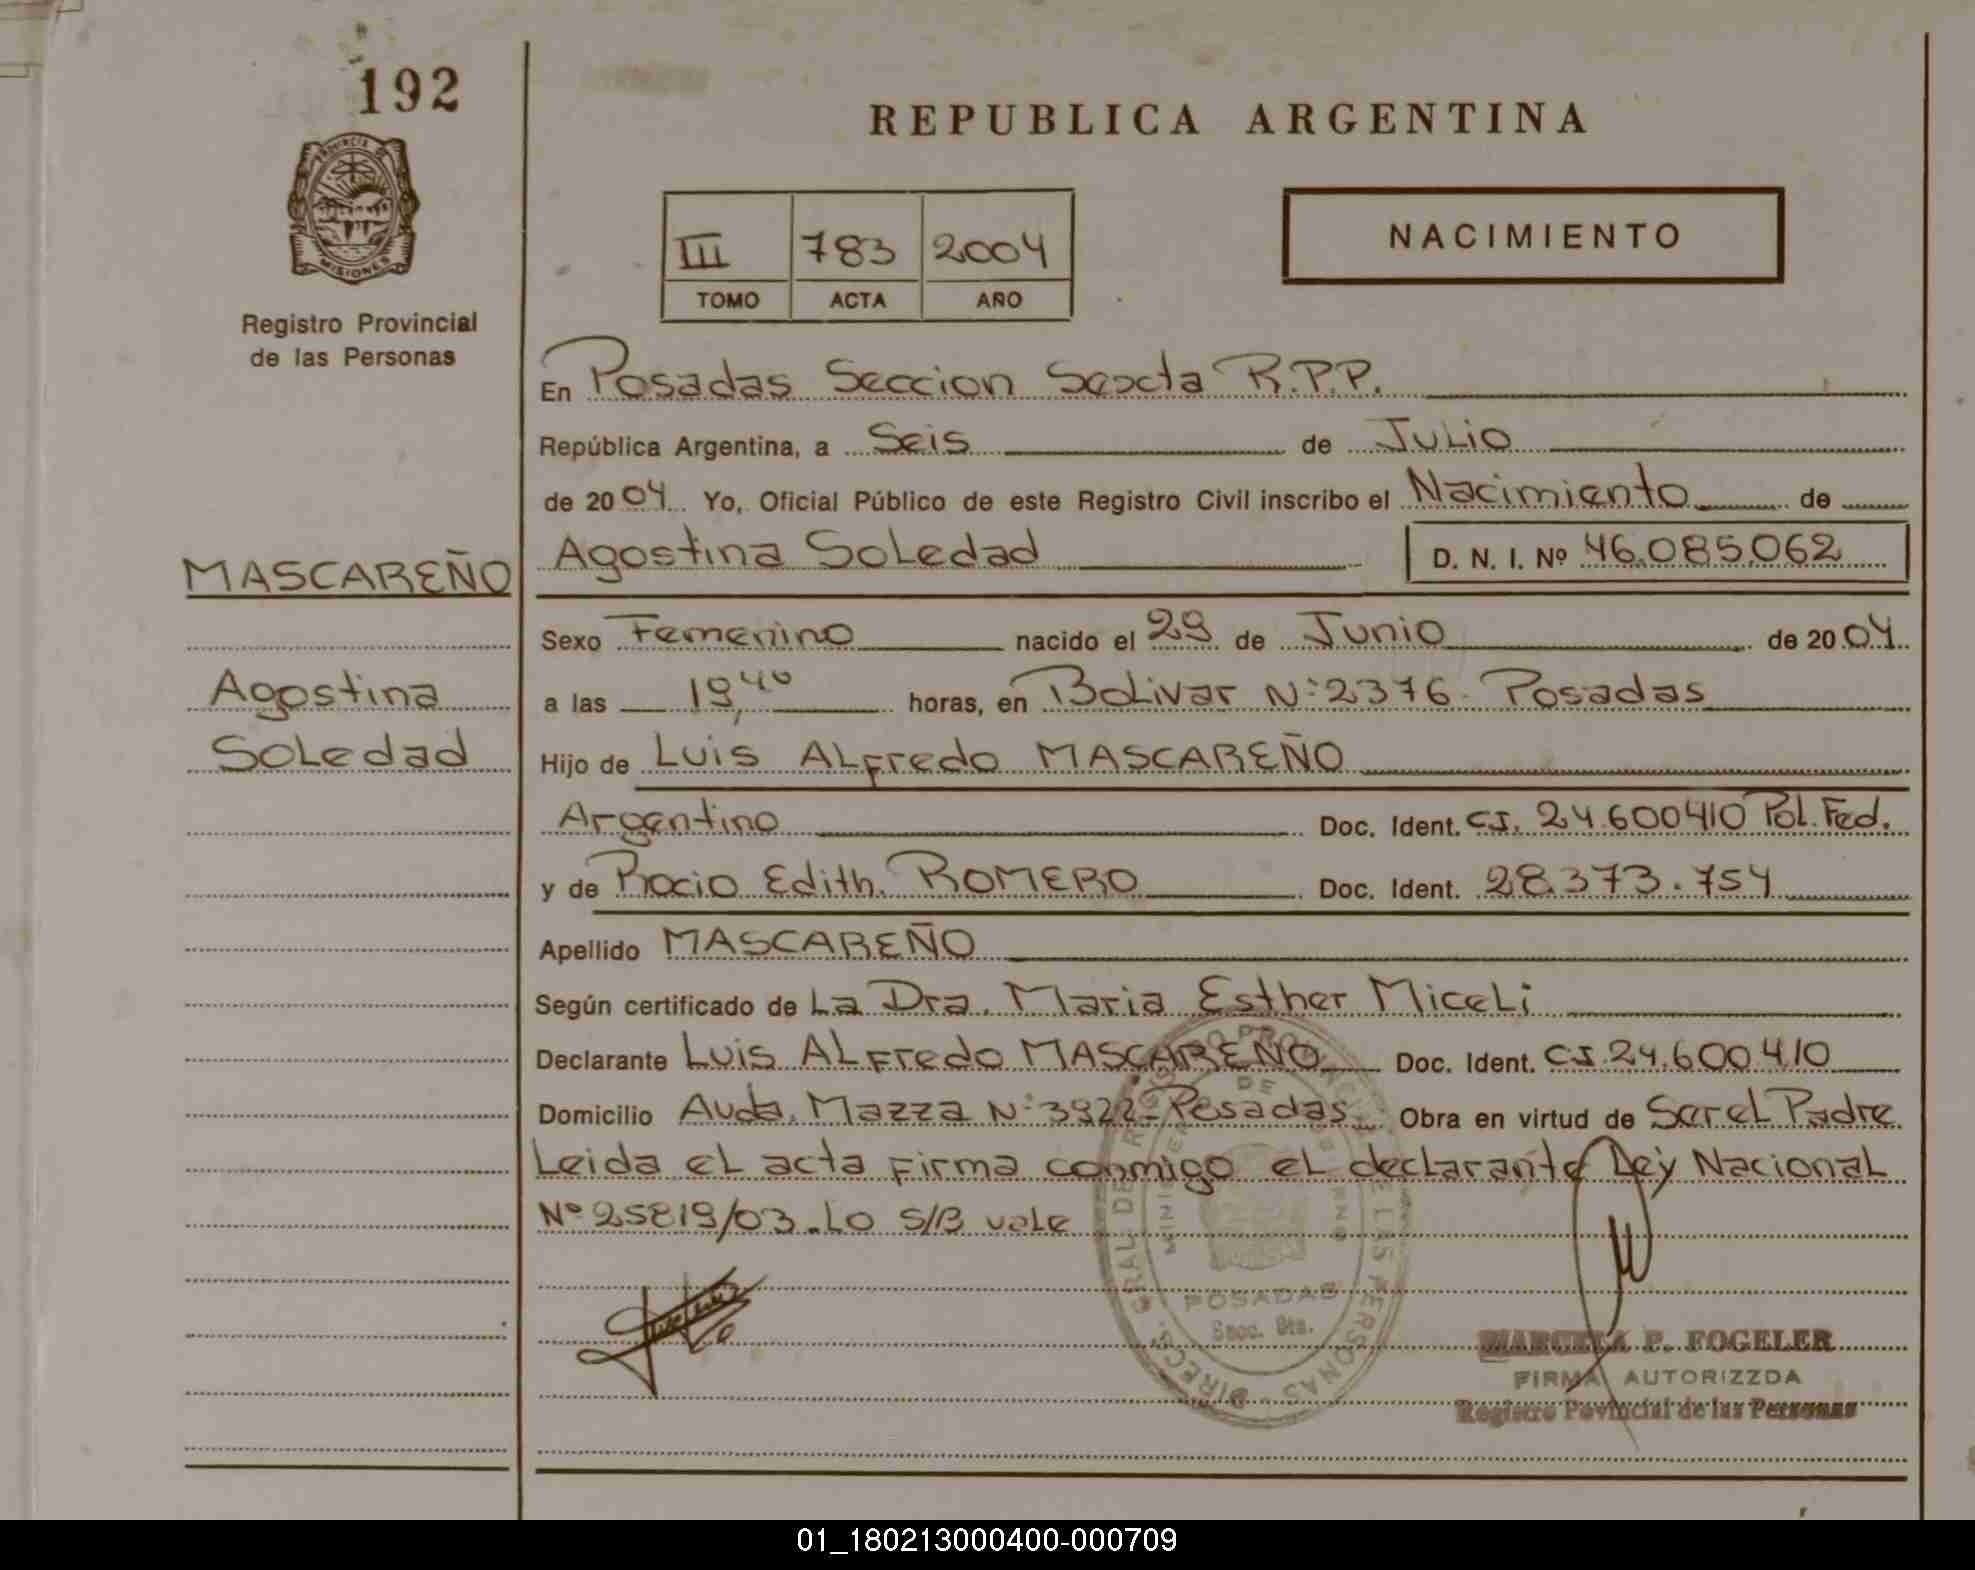 192
REPUBLICA ARGENTINA
PROVINCIA DE
MISIONES
Registro Provincial
de las Personas
III 783 2004
TOMO ACTA AÑO
NACIMIENTO
En Posadas Seccion Sexta R.P.P.
República Argentina, a Seis de Julio
de 2004 Yo, Oficial Público de este Registro Civil inscribo el Nacimiento de
MASCAREÑO
Agostina Soledad D. N. I. Nº 46.085.062
Sexo Femenino nacido el 29 de Junio de 2004
Agostina
a las 19,40 horas, en Bolivar Nº 2376 - Posadas
Soledad
Hijo de Luis Alfredo MASCAREÑO
Argentino Doc. Ident. C.I. 24.600410 Pol. Fed.
y de Rocio Edith. ROMERO Doc. Ident. 28.373.754
Apellido MASCAREÑO
Según certificado de La Dra. Maria Esther Miceli
Declarante Luis Alfredo MASCAREÑO Doc. Ident. C.I. 24.600410
Domicilio Avda. Mazza Nº 3922 - Posadas Obra en virtud de Ser el Padre
Leida el acta firma conmigo el declarante Ley Nacional
Nº 25819/03. Lo S/B vale
POSADAS
Secc. 6ta.
MARCELA P. FOGELER
FIRMA AUTORIZZDA
Registro Povincial de las Personas
01_180213000400-000709